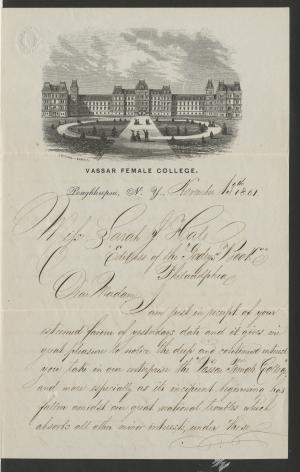 VASSAR FEMALE COLLEGE.
Poughkeepsie, N. Y. November 1861
Miss Sarah J Hale
Editress of the "Godeys Book"
Philadelphia
Dear Madam
I am just in receipt of your
esteemed favour of yesterdays date and it gives me
great pleasure to notice the deep and continued interest
you take in our enterprise the Vassar Female College
and more especially as its incipient beginning has
fallen amidst our great national troubles which
absorbs all other minor interest, under these